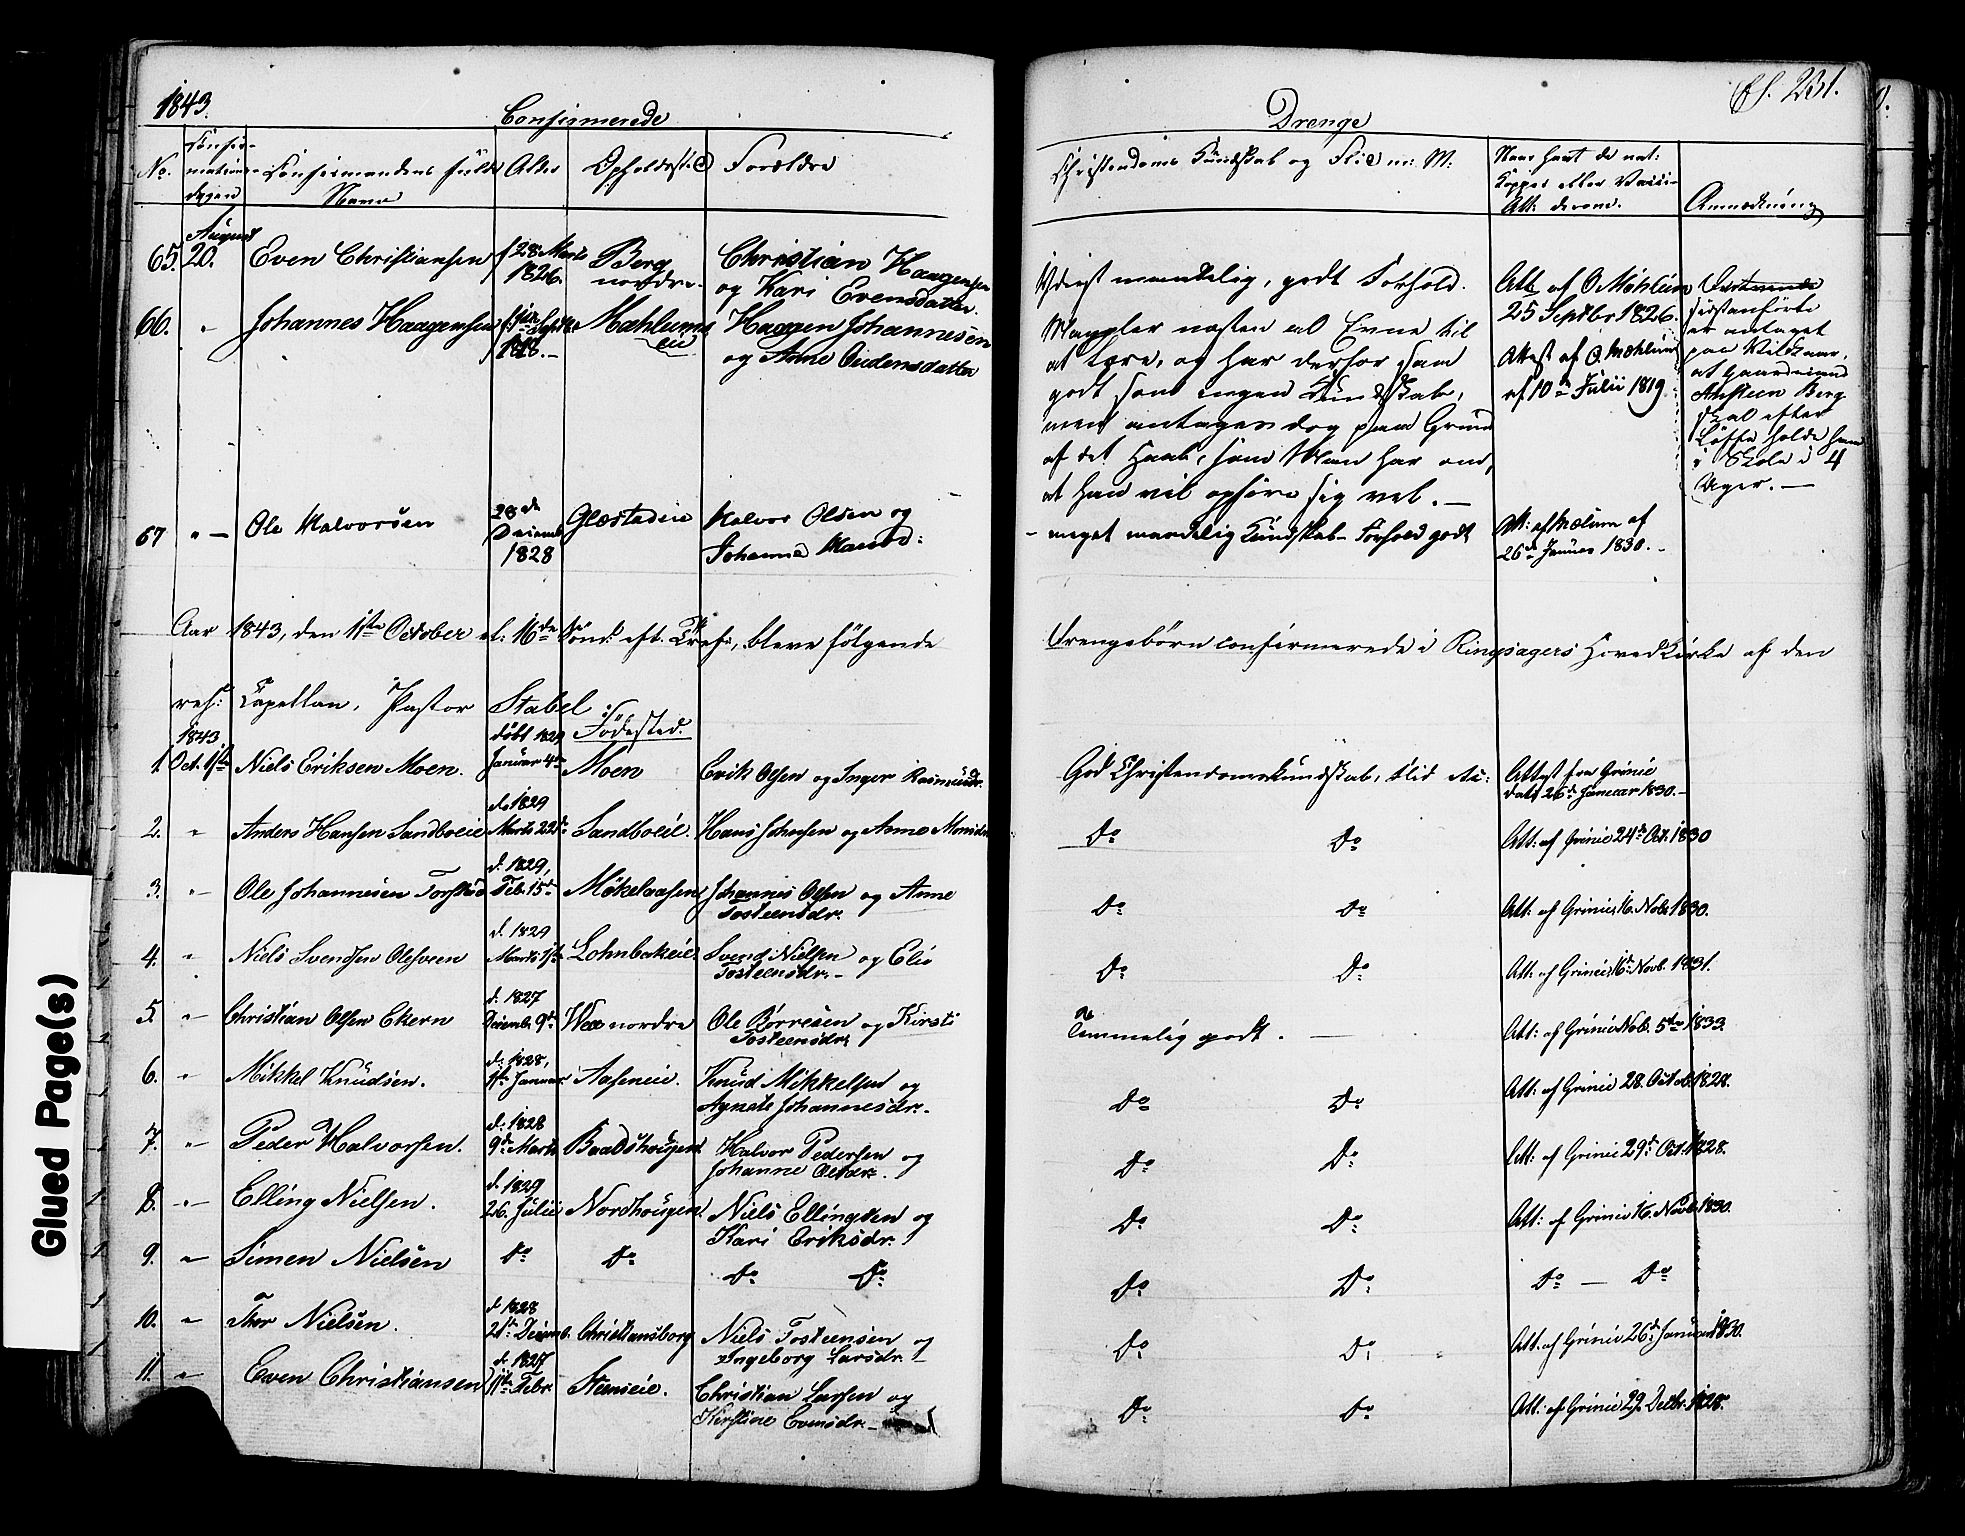 1843.
Confirmerede
Drenge
No.
Confir-
mations-
dagen
Confirmandens fulde
Navn
Alder
Opholdssted
Forældre
Christendoms Kundskab og Flid m: M:
Naar havt de nat:
Kopper eller Vacci-
Att: derom.
Anmærkning
65. August 20. Even Christiansen f 28 Marts 1826. Berg nordre. Christian Haagensen og Kari Evensdatter.
Yderst maadelig, godt Forhold.
Att af O Mæhlum 25 Septbr 1826.
66. " Johannes Haagensen Mæhlums eie Haagen Johannesen og Anne Audensdatter
Mangler næsten al Evne til
at lære, og har derfor saa
godt som ingen Kundskab,
men antages dog paa Grund
af det Haab, som Man har om,
at han vil opføre sig vel. —
Attest af O. Mæhlum
af 10de Julii 1819.
sidstanførte
er antaget
paa Vilkaar,
at Gaardmand
Berg
skal efter
Løfte holde ham
i Skole i 4
Uger. —
67 " — Ole Halvorsen 28de Decemb 1828 Glæstadeie Halvor Olsen og Johanne
meget maadelig Kundskab – Forhold godt
Att: af Mælum af 26de Januar 1830. -
Aar 1843, den 1ste October el: 16de Sønd. eft. Tref:, bleve følgende Drengebørn confirmerede i Ringsagers Hovedkirke af den
res: Capellan, Pastor Stabel
1843
Fødested:
1. Oct. 1ste Niels Eriksen Moen. døbt 1829 Januar 4de Moen Erik Olsen og Inger Rasmusdr.
God Christendomskundskab, Flid
Attest fra Grinie dat: 26de Januar 1830. -
2. " Anders Hansen Sandboeie d. 1829 Marts 29de Sandboeie. Hans Johnsen og Anne
Do Do
Att: af Grinie 24de Oct. 1830
3. " Ole Johannesen Torstad d. 1829, Feb. 15de Møkelaasen Johannes Olsen og Anne Tosteensdr.
Do Do
Att: af Grinie 16. Novb 1830.
4. " Niels Svendsen Olsveen d. 1829 Marts 1ste Lohnbakeie Svend Nielsen og Elie Tosteensdr. -
Do Do
Att: af Grinie 16de Novb. 1831.
5. " Christian Olsen Ekern d. 1827 Decemb. 9de Wee nordre Ole Børresen og Kirsti Tosteensdr.
Temmelig godt. —
Att: af Grinie Nob. 5te 1833.
6. " Mikkel Knudsen. d. 1828, 1ste Januar Aaseneie. Knud Mikkelsen og Agnete Johannesdr. -
Do Do
Att: af Grinie 28. Octob. 1828.
7. " Peder Halvorsen. d. 1828 9de Marts Baadshougen Halvor Pedersen og Johanne
Do Do
Att: af Grinie 29de Oct. 1828.
8. " Elling Nielsen. d. 1829 26. Julii Nordhougen. Niels Ellingsen og Kari Eriksdr.
Do Do
Att: af Grinie 16. Novb. 1830.
9. " Simen Nielsen Do Do Do Do
Do Do
Do — Do
10. " Thor Nielsen. d. 1828 21de Decemb. Christiansborg Niels Tosteensen og Ingeborg Larsdr. -
Do Do
Att: af Grinie 26de Januar 1830.
11. " Even Christiansen d. 1827 11te Febr. Christian Larsen og Kirstine Evensdr. -
Do Do
Att: af Grinie 29. Decbr. 1828.
Glued Page(s)